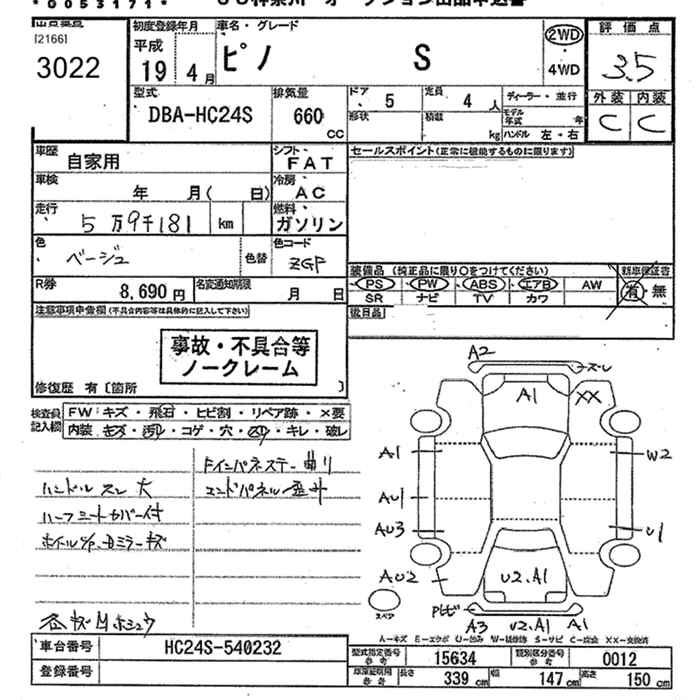 *0053171*
[2166]
3022
初度登録年月
平成
19年4月
車名・グレード
ピノ S
2WD
・
4WD
評価点
3.5
型式
DBA-HC24S
排気量
660
CC
ドア
5
定員
4人
形状
積載
kg
ディーラー・並行
モデル年式 年
ハンドル 左・右
外装 内装
C C
車歴
自家用
シフト
FAT
セールスポイント(正常に機能するものに限ります)
車検
年 月( 日)
冷房
AC
走行
5万9千181 km
燃料
ガソリン
色
ベージュ
色替
色コード
ZGP
R券
8,690円
名変通知期限
月 日
装備品 (純正品に限り○をつけてください)
PS PW ABS エアB AW
SR ナビ TV カワ
新車保証書
有・無
後日品
注意事項申告欄(不具合内容等は具体的に記入して下さい)
事故・不具合等
ノークレーム
修復歴 有〔箇所 〕
検査員記入欄
FW:キズ・飛石・ヒビ割・リペア跡・×要
内装:キズ・汚れ・コゲ・穴・スレ・キレ・破レ
ハンドルスレ大
ハーフミートカバー付
ホイルC/P、Bミラーキズ
各キズAホシュウ
Fインパネステー曲り
エンドパネル歪み
A2
ズレ
A1
XX
A1
W2
AU1
AU3
U1
AU2
U2.A1
Pヒビ
A3
U2.A1
A1
スペア
A−キズ E−エクボ U−凹み W−補修跡 S−サビ C−腐食 XX−交換済
車台番号
HC24S-540232
登録番号
型式指定番号
参考
15634
類別区分番号
参考
0012
車庫証明用
参考
長さ 339 cm
幅 147 cm
高さ 150 cm